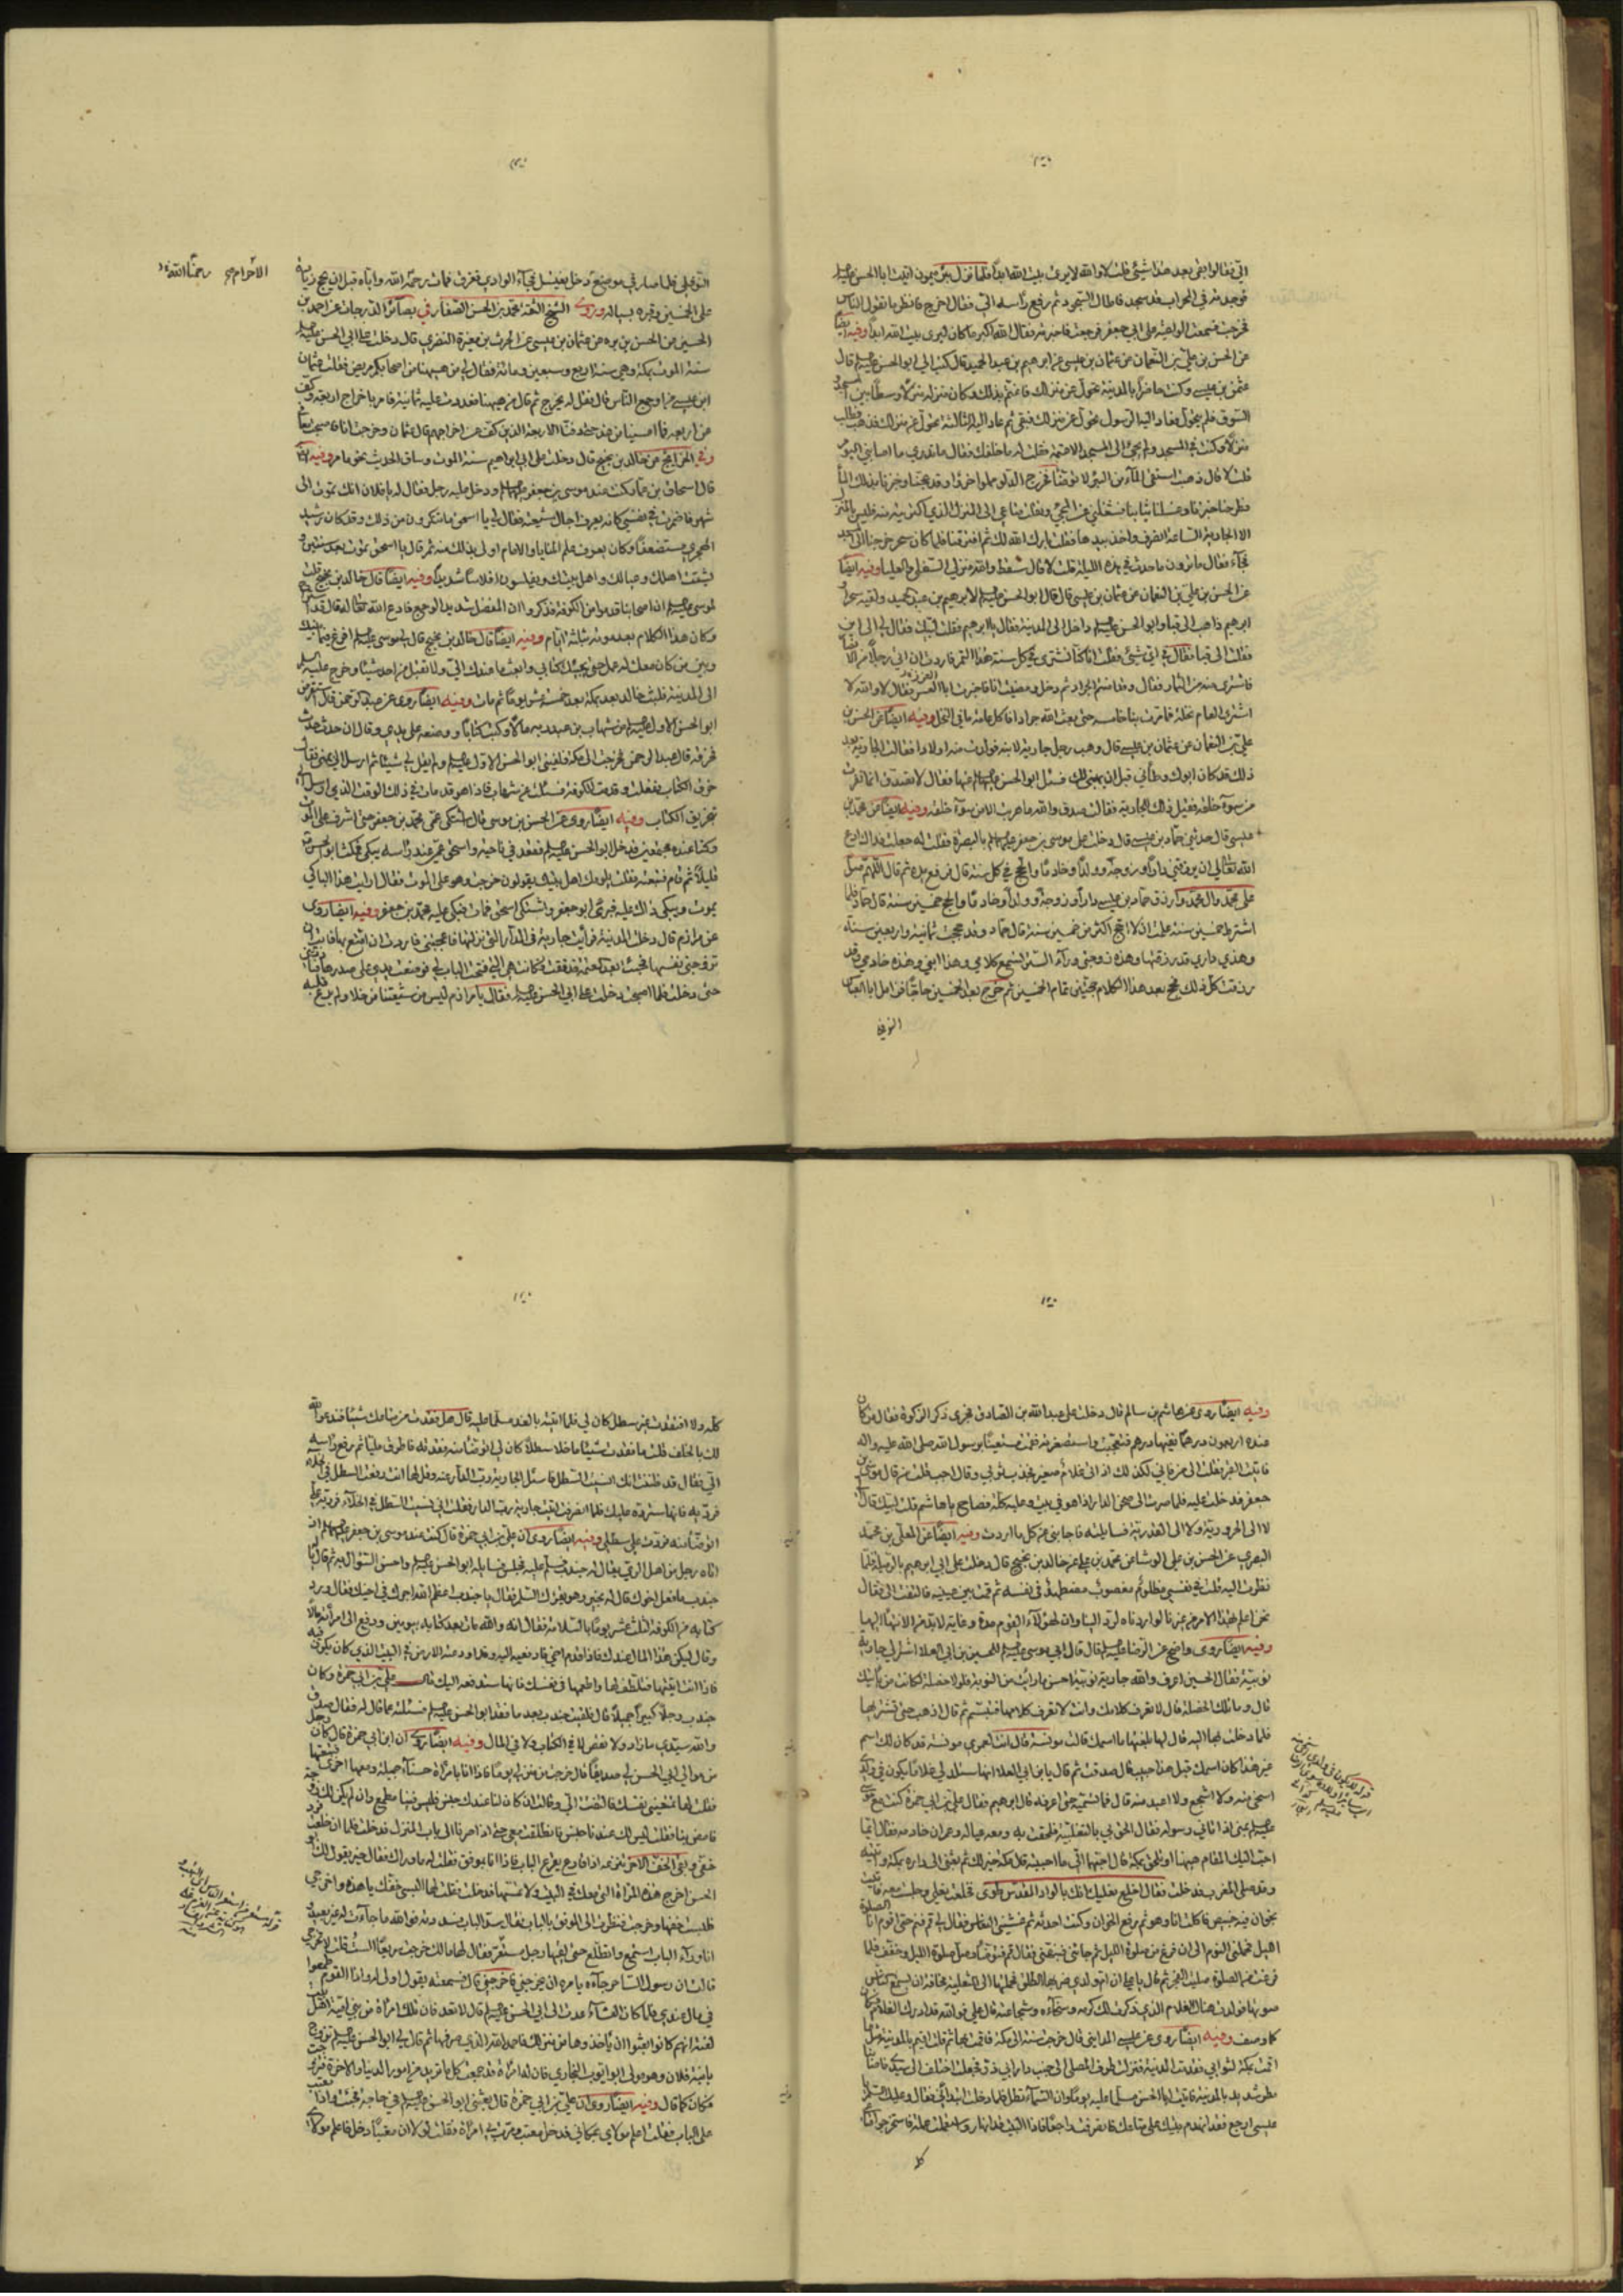 الي فقالوا بقي بعد هذا شيئ قلت لا والله لا يرى بيت الله ابدا فلما نزل بئر ميمون اتيت ابا الحسن عليه السلم
فوجدته في المحراب قد سجد فاطال السجود ثم رفع راسه الي فقال اخرج فانظر ما يقول الناس
فخرجت فسمعت الواعية على ابي جعفر فرجعت فاخبرته فقال الله اكبر ما كان ليرى بيت الله ابدا وفيه ايضا
عن الحسن بن علي بن النعمان عن عثمان بن عيسى عن ابرهيم بن عبد الحميد قال كتب الي ابو الحسن عليه السلم قال
عثمن بن عيسى وكنت حاضرا بالمدينة تحول عن منزلك فاغتم بذلك وكان منزله منزلا وسطا بين المسجد و
السوق فلم يتحول فعاد اليه الرسول تحول عن منزلك فبقي ثم عاد اليه الثالثة تحول عن منزلك فذهب وطلب
منزلا وكنت في المسجد ولم يجئ الى المسجد الا عتمة فقلت له ما خلفك فقال ما تدري ما اصابني اليوم
قلت لا قال ذهبت استقي الماء من البئر لا توضأ فخرج الدلو مملوا خرؤا وقد عجنا وخبزنا بذلك الماء
فطرحنا خبزنا وغسلنا ثيابنا فشغلني عن المجئ ونقلت متاعي الى المنزل الذي اكتريته فليس بالمنزل
الا الجارية الساعة انصرف واخذ بيدها فقلت بارك الله لك ثم افترقنا فلما كان سحر خرجنا الى المسجد
فجاء فقال ما ترون ما حدث في هذه الليلة قلت لا قال سقط والله منزلي السفلى والعليا وفيه ايضا
عن الحسن بن علي بن النعمان عن عثمان بن عيسى قال قال ابو الحسن عليه السلم لابرهيم بن عبد الحميد ولقيه سحرا و
ابرهيم ذاهب الى قبا وابو الحسن عليه السلم داخل الى المدينة فقال يا ابرهيم فقلت لبيك فقال لي الى اين
فقلت الى قبا فقال في اي شئ فقلت انا كنا نشتري في كل سنة هذا التمر فاردت ان اتي رجلا من الانصار
فاشتري منه من الثمار فقال وقد امنتم الجراد ثم دخل ومضيت انا فاخبرت ابا العز فقال لا والله لا
اشتري العام نخلة فما مرت بنا خامسة حتى بعث الله جرادا فاكل عامة ما في النخل وفيه ايضا عن الحسن بن
علي بن النعمان عن عثمان بن عيسى قال وهب رجل جارية لابنه فولدت منه اولادا فقالت الجارية بعد
ذلك قد كان ابوك وطأني قبل ان يهبني لك فسئل ابو الحسن عليه السلم عنها فقال لا تصدق انما تفر
من سوء خلقه فقيل ذلك للجارية فقالت صدق والله ما هربت الا من سوء خلقه وفيه ايضا عن محمد بن
عيسى قال حدثني حماد بن عيسى قال دخلت على موسى بن جعفر عليهما السلم بالبصرة فقلت له جعلت فداك ادع
الله تعالى ان يرزقني دارا وزوجة وولدا وخادما والحج في كل سنة قال فرفع يده ثم قال اللهم صل
على محمد وال محمد وارزق حماد بن عيسى دارا وزوجة وولدا وخادما والحج خمسين سنة قال حماد فلما
اشترط خمسين سنة علمت ان لا احج اكثر من خمسين سنة قال حماد وقد حججت ثمانية واربعين سنة
وهذي داري قد رزقتها وهذه زوجتي وراء الستر تسمع كلامي وهذا ابني وهذه خادمي قد
رزقت كل ذلك فحج بعد هذا الكلام حجتين تمام الخمسين ثم خرج بعد الخمسين حاجا فزامل ابا العباس
النوفلي
النوفلي فلما صار في موضع الاحرام دخل يغتسل فجاء الوادي فغرق فمات رحمنا الله واياه قبل ان يحج زيادة
على الخمسين وقبره بسيالة وروى الشيخ الثقة محمد بن الحسن الصفار في بصائر الدرجات عن احمد بن
الحسين عن الحسن بن بره عن عثمان بن عيسى عن الحرث بن مغيرة النضري قال دخلت على ابي الحسن عليه السلم
سنة الموت بمكة وهي سنة اربع وسبعين ومائة فقال لي من هيهنا من اصحابكم مريض فقلت عثمان
ابن عيسى من اوجع الناس قال فقل له يخرج ثم قال من هيهنا فعددت عليه ثمانية فامر باخراج اربعة وكف
عن اربعة فما امسينا من غد حتى دفنا الاربعة الذين كف عن اخراجهم قال عثمان وخرجت انا فاصبحت معافا
وفي الخرايج عن خالد بن نجيح قال دخلت على ابي ابراهيم سنة الموت وساق الحديث نحو ما مر وفيه
قال اسحاق بن عمار كنت عند موسى بن جعفر عليهما السلم ودخل عليه رجل فقال له يا فلان انك تموت الى
شهر فاضمرت في نفسي كانه يعرف اجال شيعته فقال لي يا اسحق ما تنكرون من ذلك وقد كان رشيد
الهجري مستضعفا وكان يعرف علم المنايا والامام اولى بذلك منه ثم قال يا اسحق تموت بعد سنتين و
يشتت اهلك وعيالك واهل بيتك ويفلسون افلاسا شديدا وفيه ايضا قال خالد بن نجيح قلت
لموسى عليه السلم ان اصحابنا قدموا من الكوفة فذكروا ان المفضل شديد الوجع فادع الله تعالى له قال قد استراح
وكان هذا الكلام بعد موته بثلثة ايام وفيه ايضا قال خالد بن نجيح قال لي موسى عليه السلم افرغ فيما بينك
وبين من كان معك له عمل حتى يجيئك كتابي وابعث ما عندك الي ولا تقبل من احد شيئا وخرج عليه السلم
الى المدينة فلبث خالد بعد بمكة بعده خمسة عشر يوما ثم مات وفيه ايضا روى عن عبد الرحمن قال استقرض
ابو الحسن الاول عليه السلم من شهاب بن عبد ربه مالا وكتب كتابا ووضعه على يدي وقال ان حدث حدث
فخرقه قال عبد الرحمن فخرجت الى مكة فلقيني ابو الحسن الاول عليه السلم ولم يقل لي شيئا ثم ارسل الي بمنى فقال
خرق الكتاب ففعلت وقدمت الكوفة فسئلت عن شهاب فاذا هو قد مات في ذلك الوقت الذي ارسل الي
بتخريق الكتاب وفيه ايضا روى عن الحسن بن موسى قال اشتكى عمي محمد بن جعفر حتى اشرف على الموت
وكنا عنده مجتمعين فدخل ابو الحسن عليه السلم فقعد في ناحية واسحق عمي عند راسه يبكي فمكث ابو الحسن
قليلا ثم قام فتبعته فقلت يلومك اهل بيتك يقولون خرجت وهو على الموت فقال ارايت هذا الباكي
يموت ويبكي ذلك عليه فبرئ ابو جعفر واشتكى اسحق فمات فبكى عليه محمد بن جعفر وفيه ايضا روى
عن مرازم قال دخلت المدينة فرأيت جارية في الدار التي نزلتها فاعجبتني فاردت ان اتمتع بها فابت ان
تزوجني نفسها فجئت بعد العتمة فدققت فكانت هي التي فتحت الباب لي فوضعت يدي على صدرها فبادرتني
حتى دخلت فلما اصبحت دخلت على ابي الحسن عليه السلم فقال يا مرازم ليس من شيعتنا من خلا ولم يرع قلبه
الاحرام رحمنا الله
وفيه ايضا روى عن هاشم بن سالم قال دخلت على عبد الله بن الصادق فجرى ذكر الزكوة فقال من كان
عنده اربعون درهما ففيها درهم فتعجبت واستصغرته فقمت مستغيثا برسول الله صلى الله عليه واله
فاتيت القبر فقلت الى من فاني لكذلك اذ اتى غلام صغير فجذب ثوبي وقال اجب قلت من قال موسى بن
جعفر فدخلت عليه فلما صرت الى صحن الدار اذا هو في بيت وعليه كلة فصاح يا هاشم قلت لبيك قال
لا الى الحرورية ولا الى القدرية فسايلته فاجابني عن كل ما اردت وفيه ايضا عن المعلى بن محمد
البصري عن الحسن بن علي الوشا عن محمد بن علي عن خالد بن نجيح قال دخلت على ابي ابرهيم بالرميلة فلما
نظرت اليه قلت في نفسي مظلوم مغصوب مضطهد في نفسه ثم قمت بين عينيه فالتفت الي فقال
نحن اعلم بهذا الامر من غيرنا لو اردناه لرد الينا وان لهؤلاء القوم مدة وغاية لا بد من الانتهاء اليها
وفيه ايضا روى واضح عن الرضا عليه السلم قال قال ابي موسى عليه السلم للحسين بن ابي العلا اشتر لي جارية
نوبية فقال الحسين اعرف والله جارية نوبية احسن ما رايت من النوبة فلولا خصلة لكانت من شانك
قال وما تلك الخصلة قال لا تعرف كلامك وانت لا تعرف كلامها فتبسم ثم قال اذهب حتى تشتريها
فلما دخلت بها اليه قال لها بلغتها ما اسمك قالت مونسة قال انت لعمري مونسة قد كان لك اسم
غير هذا كان اسمك قبل هذا حبيبة قال صدقت ثم قال يا بن ابي العلا انها ستلد لي غلاما لا يكون في ولدي
اسخى منه ولا اشجع ولا اعبد منه قال فما تسميه حتى اعرفه قال ابرهيم فقال علي بن ابي حمزة كنت مع موسى
عليه السلم بمنى اذا اتاني رسوله فقال الحق بي بالثعلبية فلحقت به ومعه عياله وعمران خادمه فقال ايما
احب اليك المقام هيهنا او تلحق بمكة قال احبهما الي ما احببته قال مكة خير لك ثم بعثني الى داره بمكة واتيته
وقد صلى المغرب فدخلت فقال اخلع نعليك انك بالواد المقدس طوى فخلعت نعلي وجلست معه فاتيت
بخوان فيه خبيص فاكلت انا وهو ثم رفع الخوان وكنت احدثه ثم غشيني النعاس فقال لي قم فنم حتى اقوم انا لصلوة
الليل فحملني النوم الى ان فرغ من صلوة الليل ثم جائني فنبهني فقال قم فتوضا وصل صلوة الليل وخفف فلما
فرغت من الصلوة صليت الفجر ثم قال يا علي ان ام ولدي ضربها الطلق فحملتها الى الثعلبية مخافة ان يسمع الناس
صوتها فولدت هناك الغلام الذي ذكرت لك كرمه وسخائه وشجاعته قال علي فوالله لقد ادركت الغلام فكان
كما وصف وفيه ايضا روى عن عيسى المدايني قال خرجت سنة الى مكة فاقمت بها ثم قلت اقيم بالمدينة مثل ما
اقمت بمكة لثوابي فقدمت المدينة فنزلت طرف المصلى الى جنب دار ابي ذر فجعلت اختلف الى سيدي فاصابنا
مطر شديد بالمدينة فاتيت ابا الحسن مسلما عليه يوما وان السماء تهطل فلما دخلت ابتدائي فقال وعليك السلام
عيسى ارجع فقد انهدم بيتك على متاعك فانصرفت راجعا فاذا البيت قد انهار واستعملت عملة فاستخرجوا متاعي
كله
كله ولا افتقدت غير سطل كان لي فلما اتيته بالغد مسلما عليه قال هل فقدت من متاعك شيئا فندعو الله
لك بالخلف قلت ما فقدت شيئا ما خلا سطلا كان لي اتوضا منه فقدته فاطرق مليا ثم رفع راسه
الي فقال قد ظننت انك انسيت السطل فاسئل الجارية رب الدار عنه وقل لها انت رفعت السطل في الخلاء
فرديه فانها سترده عليك فلما انصرفت اتيت جارية رب الدار فقلت اني نسيت السطل في الخلاء فرديه علي
اتوضأ منه فردت علي سطلي وفيه ايضا روى ان علي بن ابي حمزة قال كنت عند موسى بن جعفر عليهما السلم اذ
اتاه رجل من اهل الري يقال له جندب فسلم عليه فجلس فسايله ابو الحسن عليه السلم واحسن السؤال به ثم قال يا
جندب ما فعل اخوك قال له بخير وهو يقرئك السلم فقال يا جندب اعظم الله اجرك في اخيك فقال ورد
كتابه من الكوفة لثلث عشر يوما بالسلامة فقال انه والله مات بعد كتابه بيومين ودفع الى امرأته مالا
وقال ليكن هذا المال عندك فاذا قدم اخي فادفعيه اليه وقد اودعته الارض في البيت الذي كان يكون فيه
فاذا انت اتيتها فتلطف لها واطمعها في نفسك فانها ستدفعه اليك قال علي بن ابي حمزة وكان
جندب رجلا كبيرا جميلا قال فلقيت جندب بعد ما فقد ابو الحسن عليه السلم فسئلته عما قال له فقال صدق
والله سيدي ما زاد ولا نقص لا في الكتاب ولا في المال وفيه ايضا روى ان ابن ابي حمزة قال كان رجل
من موالي ابي الحسن لي صديقا قال خرجت من منزلي يوما فاذا انا بامرأة حسناء جميلة ومعها اخرى فتبعتها
فقلت لها تمتعيني نفسك فالتفتت الي وقالت ان كان لنا عندك جنس فليس فينا مطمع وان لم يكن لك زوجة
فامض بنا فقلت ليس لك عندنا جنس فانطلقت معي حتى اذا صرنا الى باب المنزل فدخلت فلما ان خلعت فرد
خفي وبقي الخف الاخر تنزعه اذا قارع يقرع الباب فاذا انا بموفق فقلت له ما وراك فقال خير يقول لك ابو
الحسن اخرج هذه المراة التي معك في البيت ولا تمسها فدخلت فقلت لها البسي خفك يا هذه واخرجي
فلبست خفها وخرجت فنظرت الى الموفق بالباب فقال سد الباب فسددته فوالله ما جاءت له غير بعيد و
انا وراء الباب استمع واتطلع حتى لقيها رجل مستفز فقال لها مالك خرجت سريعا الست قلت لا تخرجي
قالت ان رسول الساحر جاءه يامره ان يخرجني فاخرجني قال فسمعته يقول اولى له واذا القوم طمعوا
في مال عندي فلما كان العشاء عدت الى ابي الحسن عليه السلم قال لا تعد فان تلك امراة من بني امية اهل بيت
لعنة انهم كانوا بعثوا ان ياخذوها من منزلك فاحمد الله الذي صرفها ثم قال لي ابو الحسن عليه السلم تزوج
بابنة فلان وهو مولى ابو ايوب البخاري فان له امراة قد جمعت كل ما تريد من امور الدنيا والاخرة فتزوجت
فكان كما قال وفيه ايضا روى ان علي بن ابي حمزة قال بعثني ابو الحسن عليه السلم في حاجة فجئت واذا معتب
على الباب فقلت اعلم مولاي بمكاني فدخل معتب ومرت بي امراة فقلت لولا ان معتبا دخل فاعلم مولاي